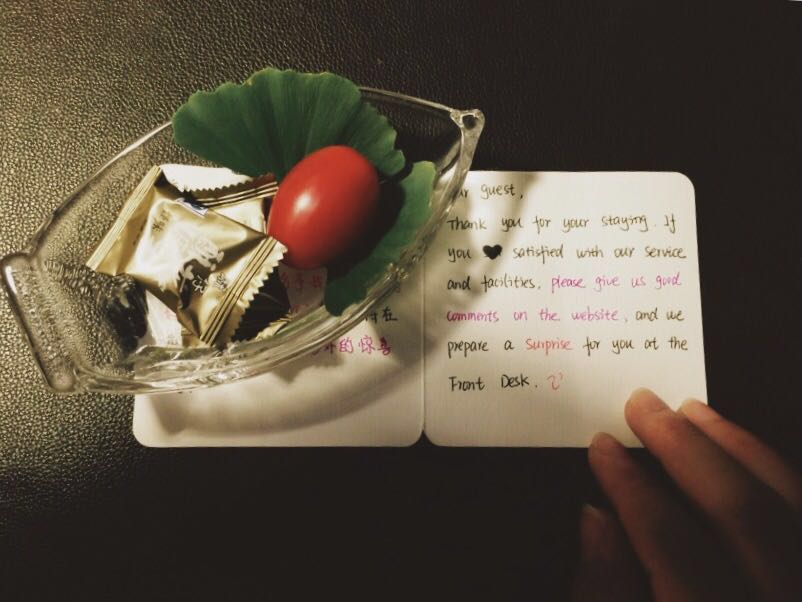 guest,
Thank you for your staying. If
you satisfied with our service
and facilities, please give us good
comments on the website, and we
prepare a surprise for you at the
Front Desk.
在
的惊喜